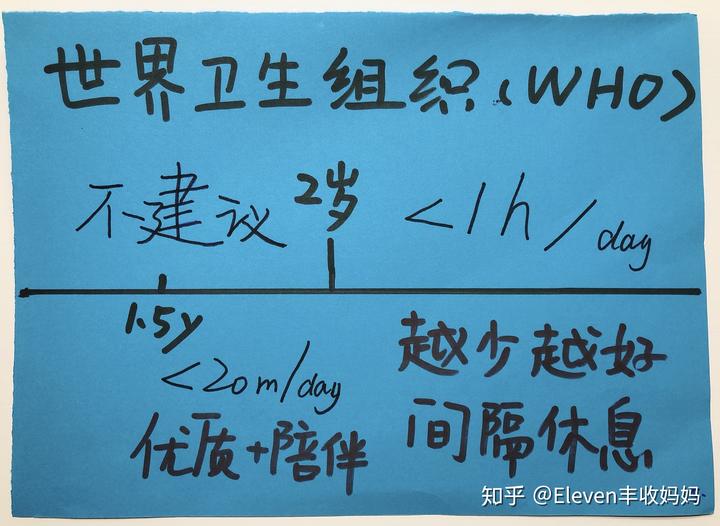 世界卫生组织(WHO)
不建议 2岁 <1h/day
1.5y
<20m/day
优质+陪伴
越少越好
间隔休息
知乎 @Eleven丰收妈妈